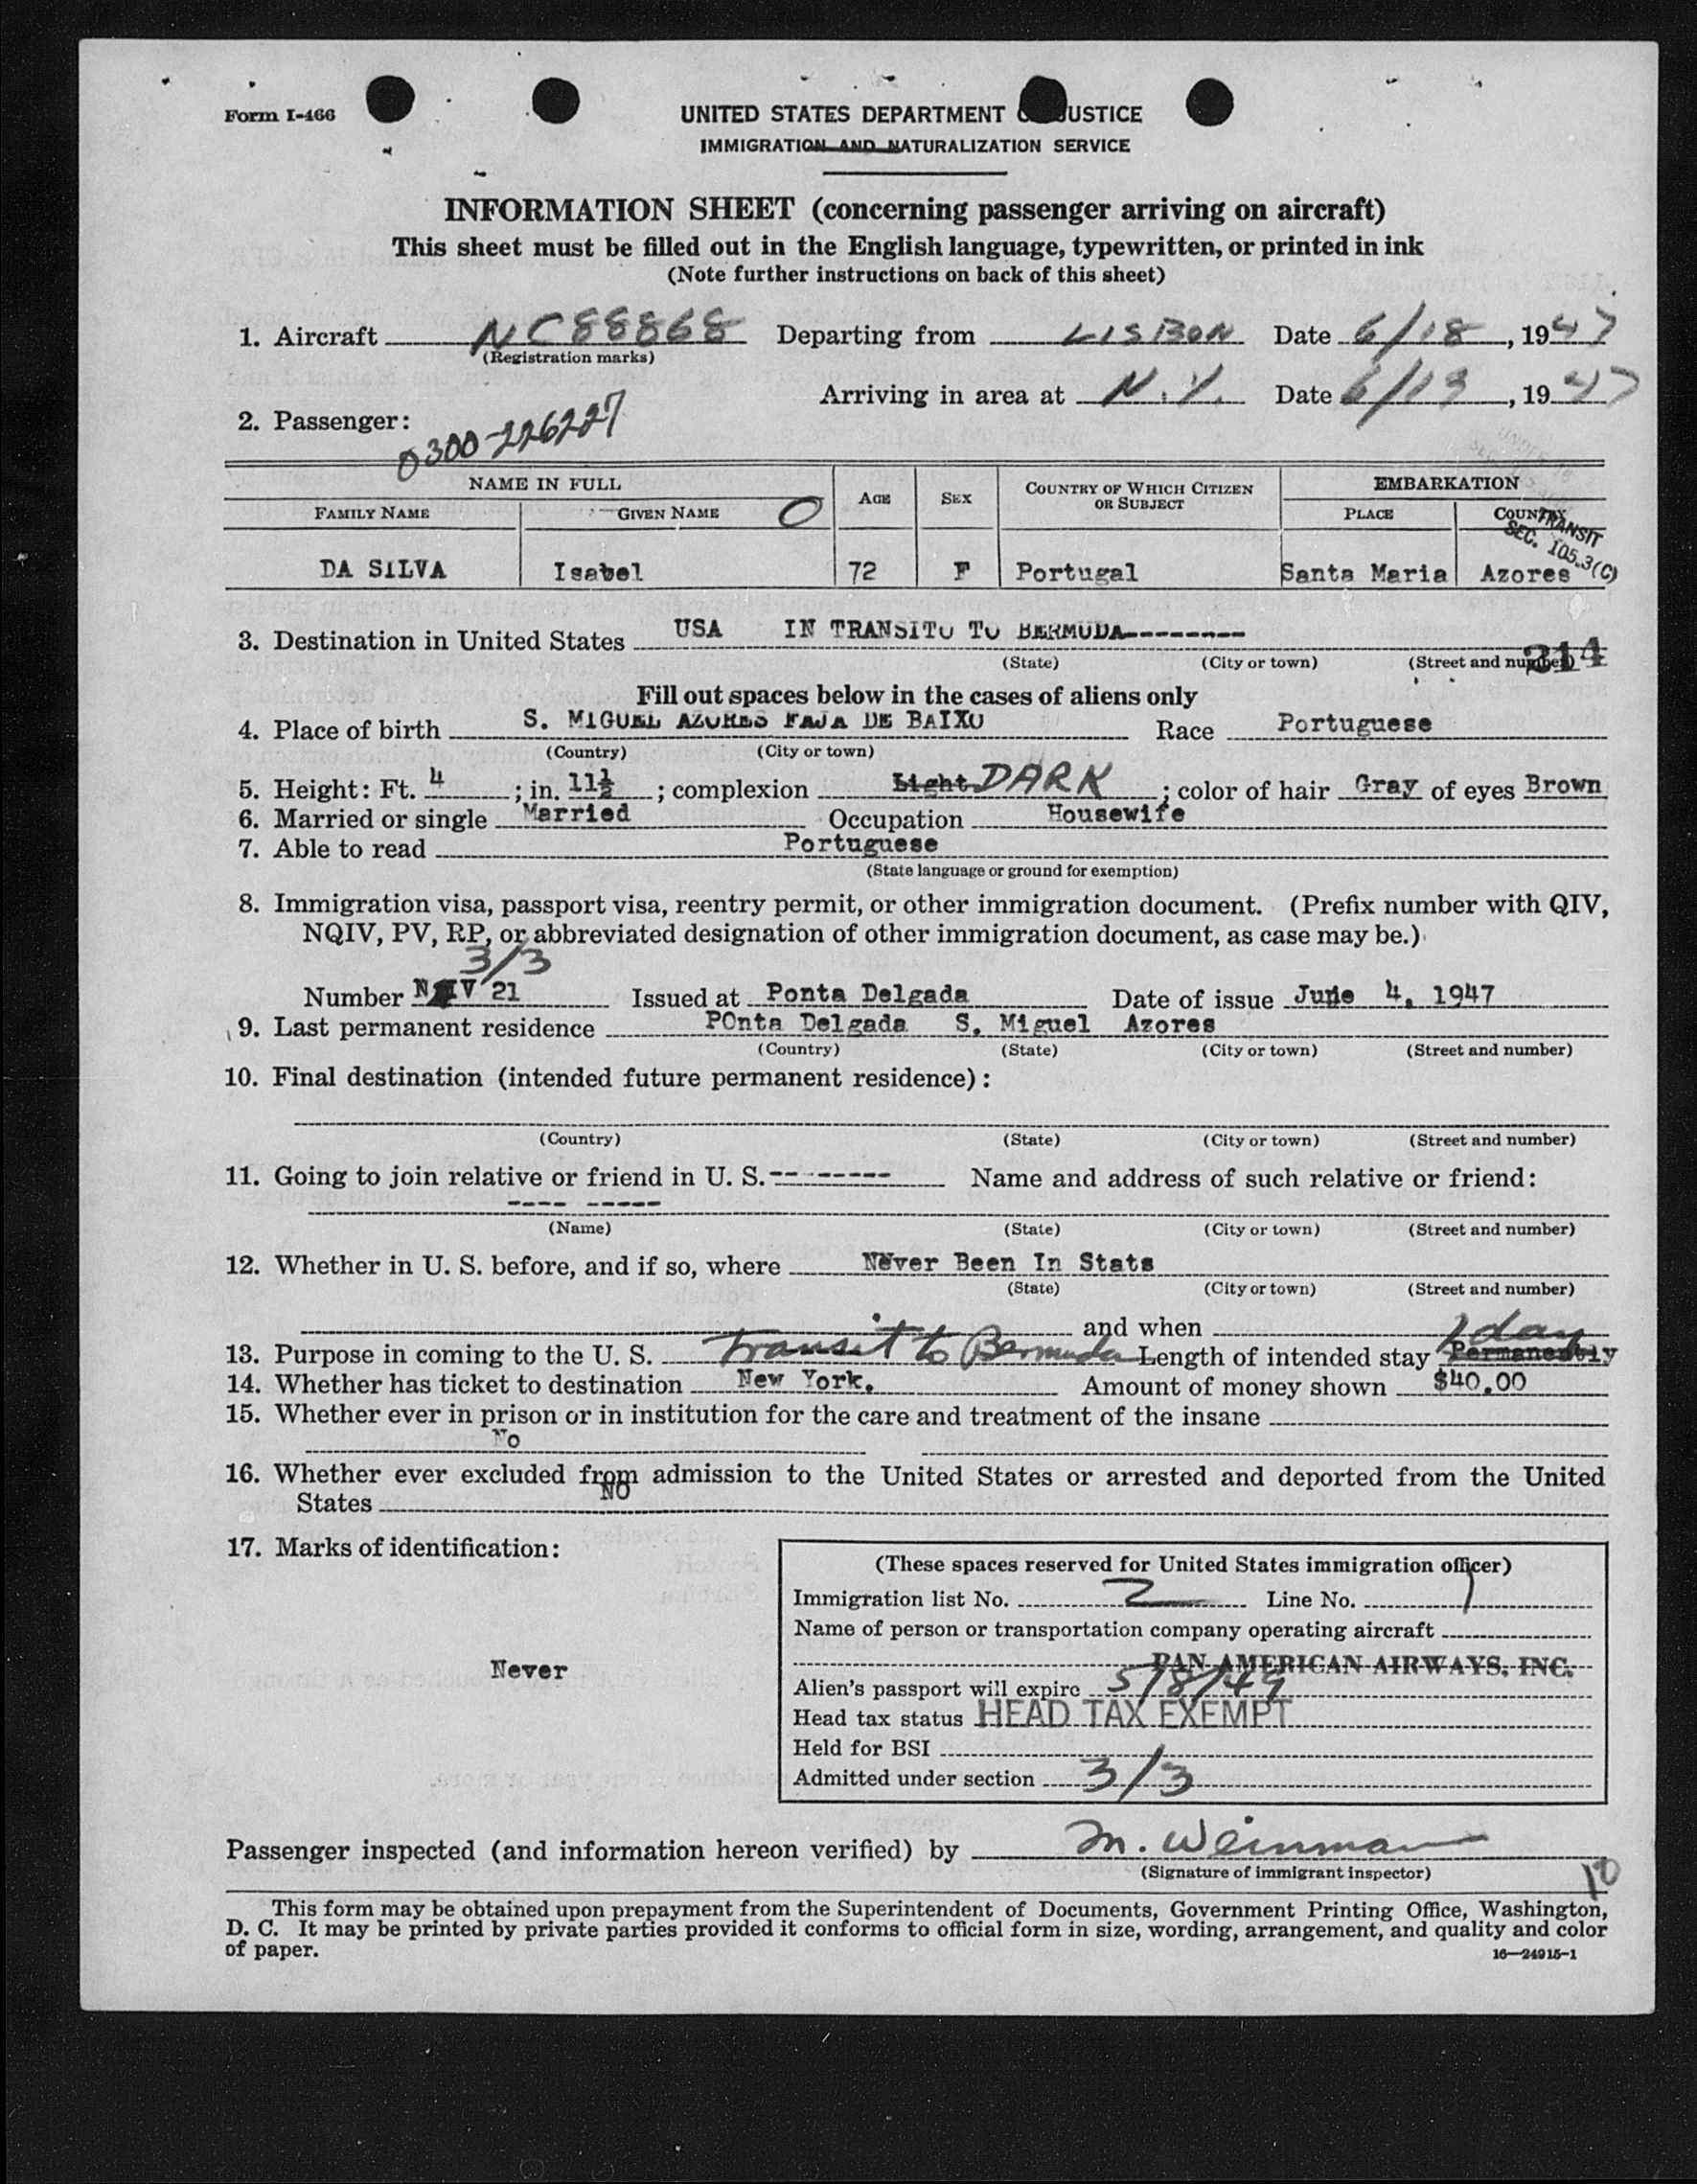 Form I-466
UNITED STATES DEPARTMENT JUSTICE
IMMIGRATION AND NATURALIZATION SERVICE
INFORMATION SHEET (concerning passenger arriving on aircraft)
This sheet must be filled out in the English language, typewritten, or printed in ink
(Note further instructions on back of this sheet)
1. Aircraft NC88868 Departing from LISBON Date 6/18, 1947
(Registration marks)
Arriving in area at N.Y. Date 6/19, 1947
2. Passenger:
0300-226227
NAME IN FULL AGE SEX COUNTRY OF WHICH CITIZEN OR SUBJECT EMBARKATION
FAMILY NAME GIVEN NAME O PLACE COUNTRY
TRANSIT
SEC. 105.3(C)
DA SILVA Isabel 72 F Portugal Santa Maria Azores
3. Destination in United States USA IN TRANSITO TO BERMUDA---------
(State) (City or town) (Street and number) 314
Fill out spaces below in the cases of aliens only
4. Place of birth S. MIGUEL AZORES FAJA DE BAIXO Race Portuguese
(Country) (City or town)
5. Height: Ft. 4; in. 11½; complexion Light DARK; color of hair Gray of eyes Brown
6. Married or single Married Occupation Housewife
7. Able to read Portuguese
(State language or ground for exemption)
8. Immigration visa, passport visa, reentry permit, or other immigration document. (Prefix number with QIV,
NQIV, PV, RP, or abbreviated designation of other immigration document, as case may be.)
3/3
Number IV 21 Issued at Ponta Delgada Date of issue June 4, 1947
9. Last permanent residence POnta Delgada S. Miguel Azores
(Country) (State) (City or town) (Street and number)
10. Final destination (intended future permanent residence):
(Country) (State) (City or town) (Street and number)
11. Going to join relative or friend in U. S. --------- Name and address of such relative or friend:
---- -----
(Name) (State) (City or town) (Street and number)
12. Whether in U. S. before, and if so, where Never Been In Stats
(State) (City or town) (Street and number)
and when
13. Purpose in coming to the U. S. Transit to Bermuda Length of intended stay 1 day Permanently
14. Whether has ticket to destination New York. Amount of money shown $40.00
15. Whether ever in prison or in institution for the care and treatment of the insane
No
16. Whether ever excluded from admission to the United States or arrested and deported from the United
States NO
17. Marks of identification:
Never
(These spaces reserved for United States immigration officer)
Immigration list No. 2 Line No. 1
Name of person or transportation company operating aircraft
PAN AMERICAN AIRWAYS, INC.
Alien's passport will expire 5/8/49
Head tax status HEAD TAX EXEMPT
Held for BSI
Admitted under section 3/3
Passenger inspected (and information hereon verified) by M. Weinman
(Signature of immigrant inspector)
10
This form may be obtained upon prepayment from the Superintendent of Documents, Government Printing Office, Washington,
D. C. It may be printed by private parties provided it conforms to official form in size, wording, arrangement, and quality and color
of paper.
16—24915-1